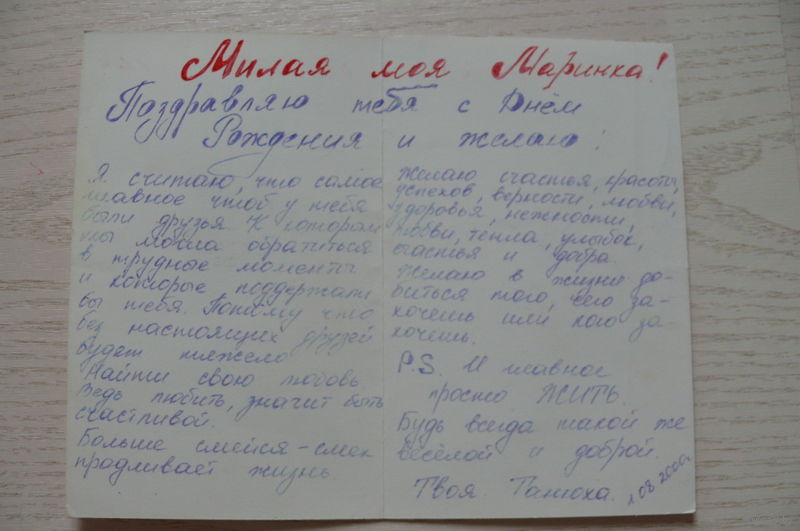 Милая моя Маринка!
Поздравляю тебя с Днём
Рождения и желаю!
Я считаю, что самое
главное чтоб у тебя
были друзья. К которым
ты могла обратиться
в трудные моменты
и которые поддержали
бы тебя. Потому что
без настоящих друзей
будет тяжело
Найти свою любовь.
Ведь любить, значит быть
счастливой.
Больше смейся - смех
продливает жизнь
желаю счастья, красоты,
успехов, верности, любви,
здоровья, нежности,
любви, тепла, улыбок,
счастья и добра.
желаю в жизни до-
биться того, чего за-
хочешь или кого за-
хочешь.
P.S. И главное
просто ЖИТЬ.
Будь всегда такой же
весёлой и доброй.
Твоя. Танюха.
08.2000г